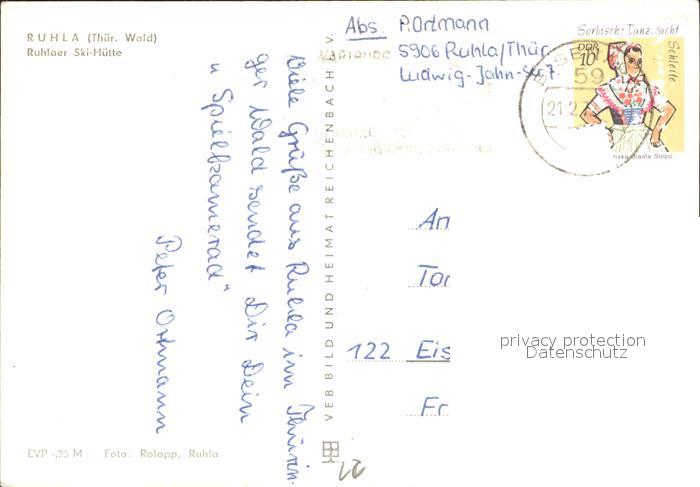 RUHLA (Thür. Wald)
Ruhlaer Ski-Hütte
Viele Grüße aus Ruhla im Thürin-
ger Wald sendet Dir Dein
"Spielkamerad"
Peter Ortmann
EVP -,25 M Foto: Rolapp, Ruhla
VEB BILD UND HEIMAT REICHENBACH i. V.
Abs. P. Ortmann
5906 Ruhla/Thür.
Ludwig-Jahn-Str. 7
Sorbische Tanztracht
Schleife
DDR
10
59
21.2
An
Tor
122 Eis
Fr
privacy protection
Datenschutz